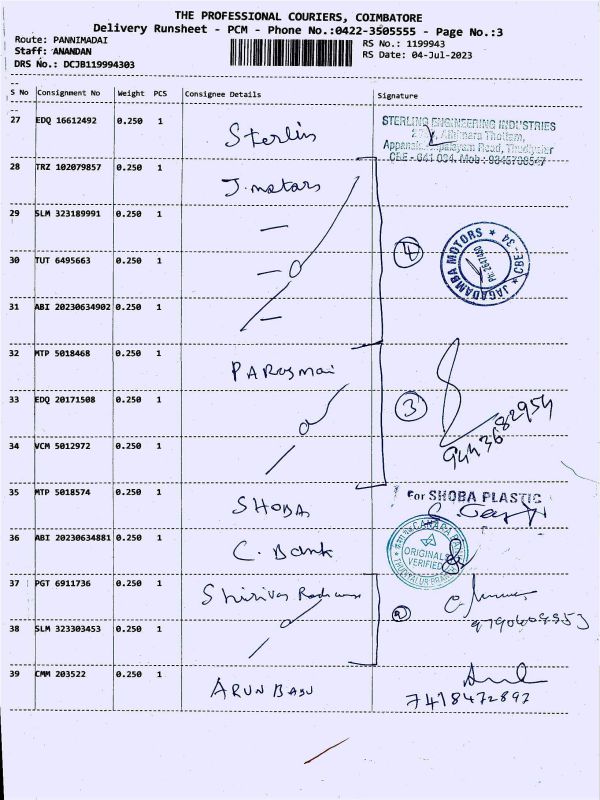 THE PROFESSIONAL COURIERS, COIMBATORE
Delivery Runsheet - PCM - Phone No.:0422-3505555 - Page No.:3
Route: PANNIMADAI
RS No.: 1199943
Staff: ANANDAN
RS Date: 04-Jul-2023
DRS No.: DCJB119994303
S No Consignment No Weight PCS Consignee Details Signature
27 EDQ 16612492 0.250 1 Sterlin
STERLING ENGINEERING INDUSTRIES
Road, Thudiyalur
CBE - 641 034. Mob : 9345708547
28 TRZ 102079857 0.250 1 J. motors
29 SLM 323189991 0.250 1
30 TUT 6495663 0.250 1
4
JAGADAMBA MOTORS * CBE - 34 *
31 ABI 20230634902 0.250 1
32 MTP 5018468 0.250 1 PARasmai
33 EDQ 20171508 0.250 1
3
9443682954
34 VCM 5012972 0.250 1
35 MTP 5018574 0.250 1 SHOBA
For SHOBA PLASTIC
36 ABI 20230634881 0.250 1 C. Bank
CANARA
ORIGINALS
VERIFIED
37 PGT 6911736 0.250 1
2
38 SLM 323303453 0.250 1
39 CMM 203522 0.250 1 ARUN BABU
7418472897